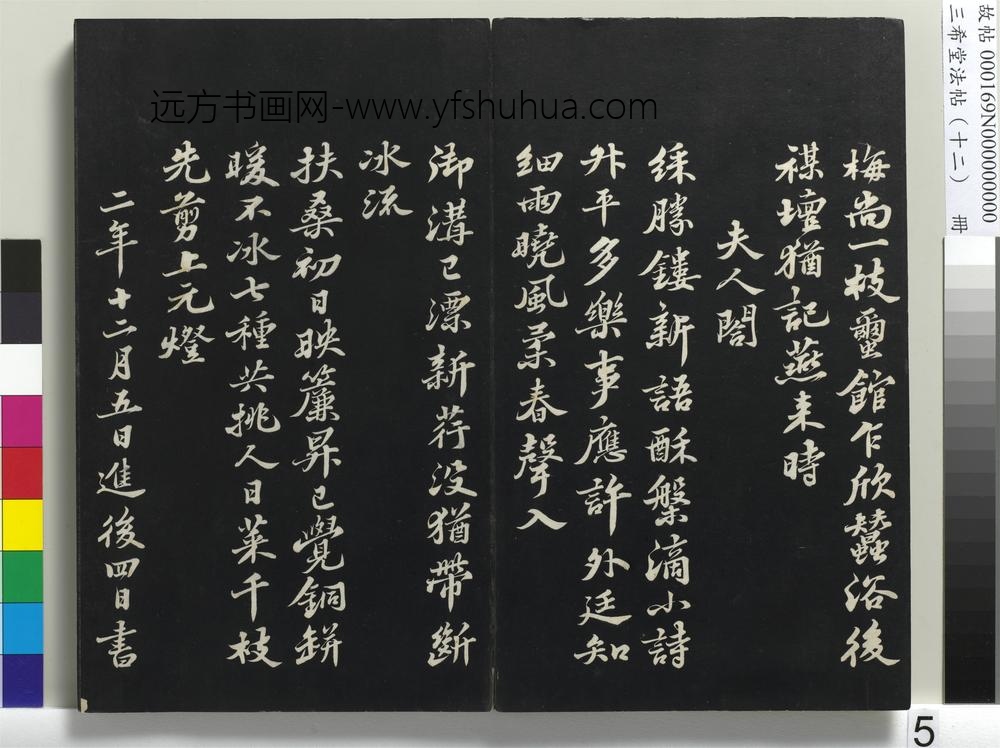 梅尚一枝蠒館乍欣蠶浴後
禖壇猶記燕来時
夫人閤
綵勝鏤新語酥槃滴小詩
外平多樂事應許外廷知
細雨曉風柔春聲入
御溝已漂新荇没猶帶斷
冰流
扶桑初日映簾昇已覺銅缾
暖不冰七種共挑人日菜千枝
先剪上元燈
二年十二月五日進後四日書
远方书画网-www.yfshuhua.com
故帖 000169N000000000
三希堂法帖（十二） 冊
5